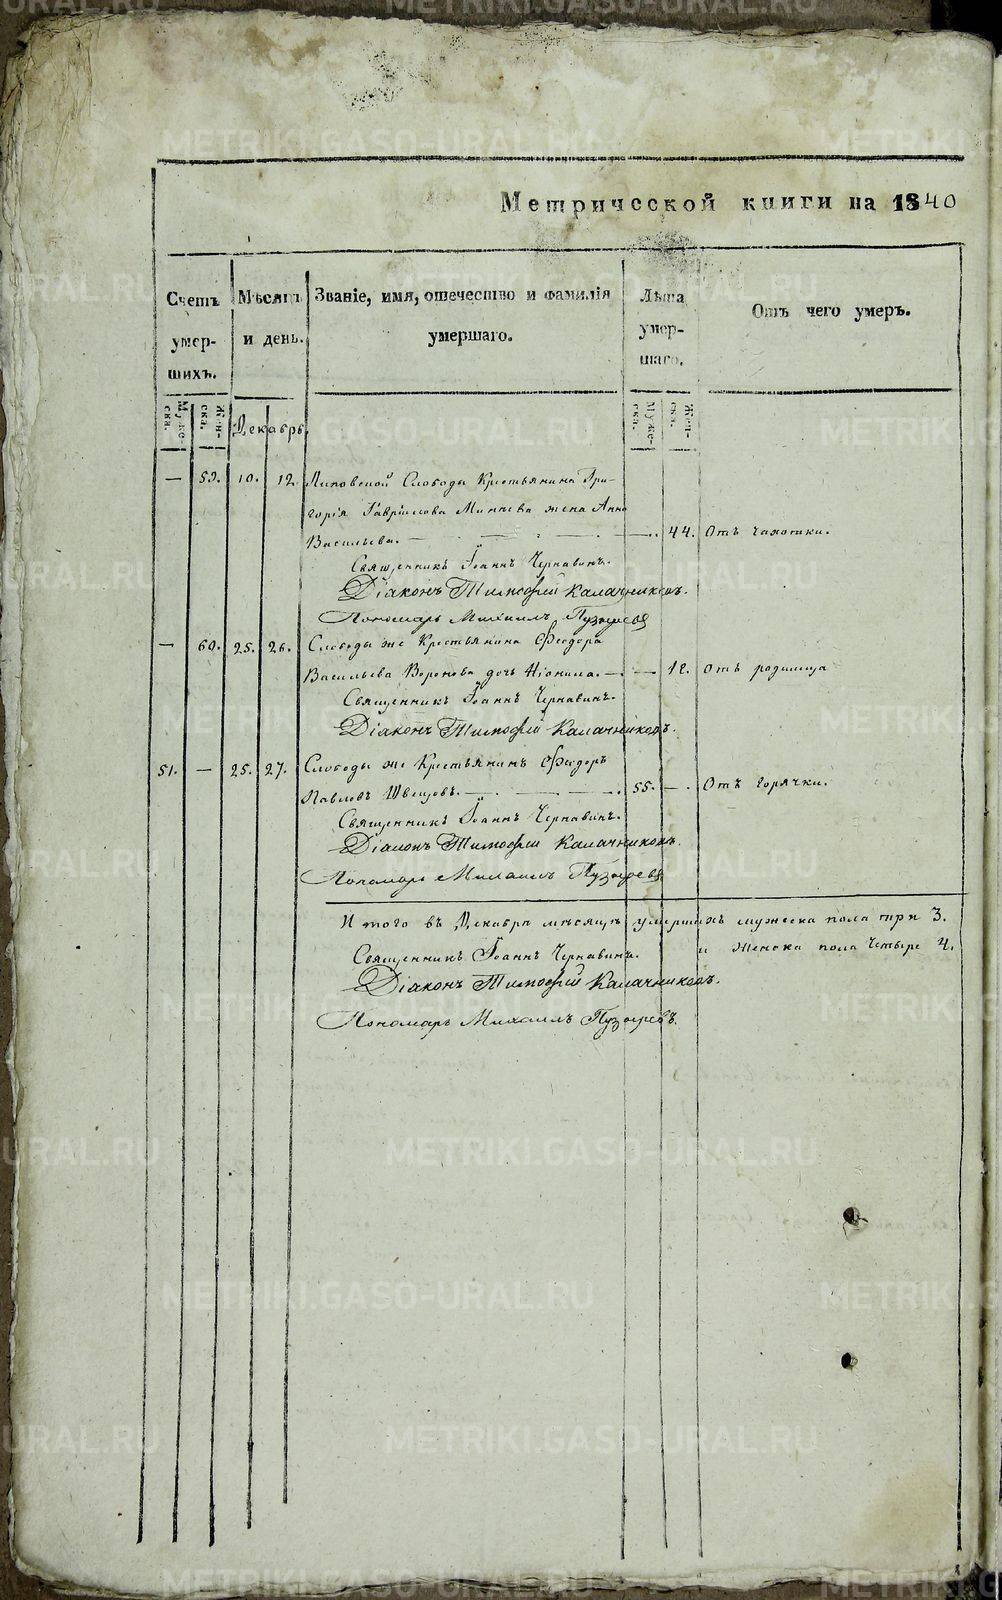 Метрической книги на 1840
Счетъ умер-шихъ.
Мѣсяцъ и день.
Званіе, имя, отечество и фамилія умершаго.
Лѣта умер-шаго.
Отъ чего умеръ.
Муже-ска.
Жен-ска.
Декабрь
Муже-ска.
Жен-ска.
— 59. 10. 12. Липовской Слободы Крестьянина Гри-
горія Гаврилова Минѣева жена Анна
Васильева. — 44. Отъ чахотки.
Священникъ Іоаннъ Чернавинъ.
Діаконъ Тимофей Калачниковъ.
Пономарь Михаилъ Пузыревъ
— 60. 25. 26. Слободы же Крестьянина Феодора
Васильева Воронова дочьНіонила. — — 12. Отъ родимца
Священникъ Іоаннъ Чернавинъ.
Діаконъ Тимофей Калачниковъ.
51. — 25. 27. Слободы же Крестьянинъ Феодоръ
Павловъ Швецовъ. — 55. — Отъ горячки.
Священникъ Іоаннъ Чернавинъ.
Діаконъ Тимофей Калачниковъ.
Пономарь Михаилъ Пузыревъ
И того въ Декабрѣ мѣсяцѣ умершихъ мужеска пола три 3.
и Женска пола Четыре 4.
Священникъ Іоаннъ Чернавинъ.
Діаконъ Тимофей Калачниковъ.
Пономарь Михаилъ Пузыревъ.
METRIKI.GASO-URAL.RU